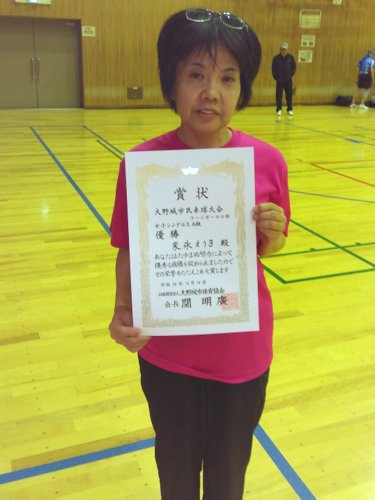 賞状
大野城市民卓球大会
ラージボールの部
女子シングルスA級
優勝
末永えり子 殿
あなたはたゆまぬ努力によって
優秀な成績を収められましたので
その栄誉をたたえこれを賞します
平成
大野城市体育協会
会長 関 明廣